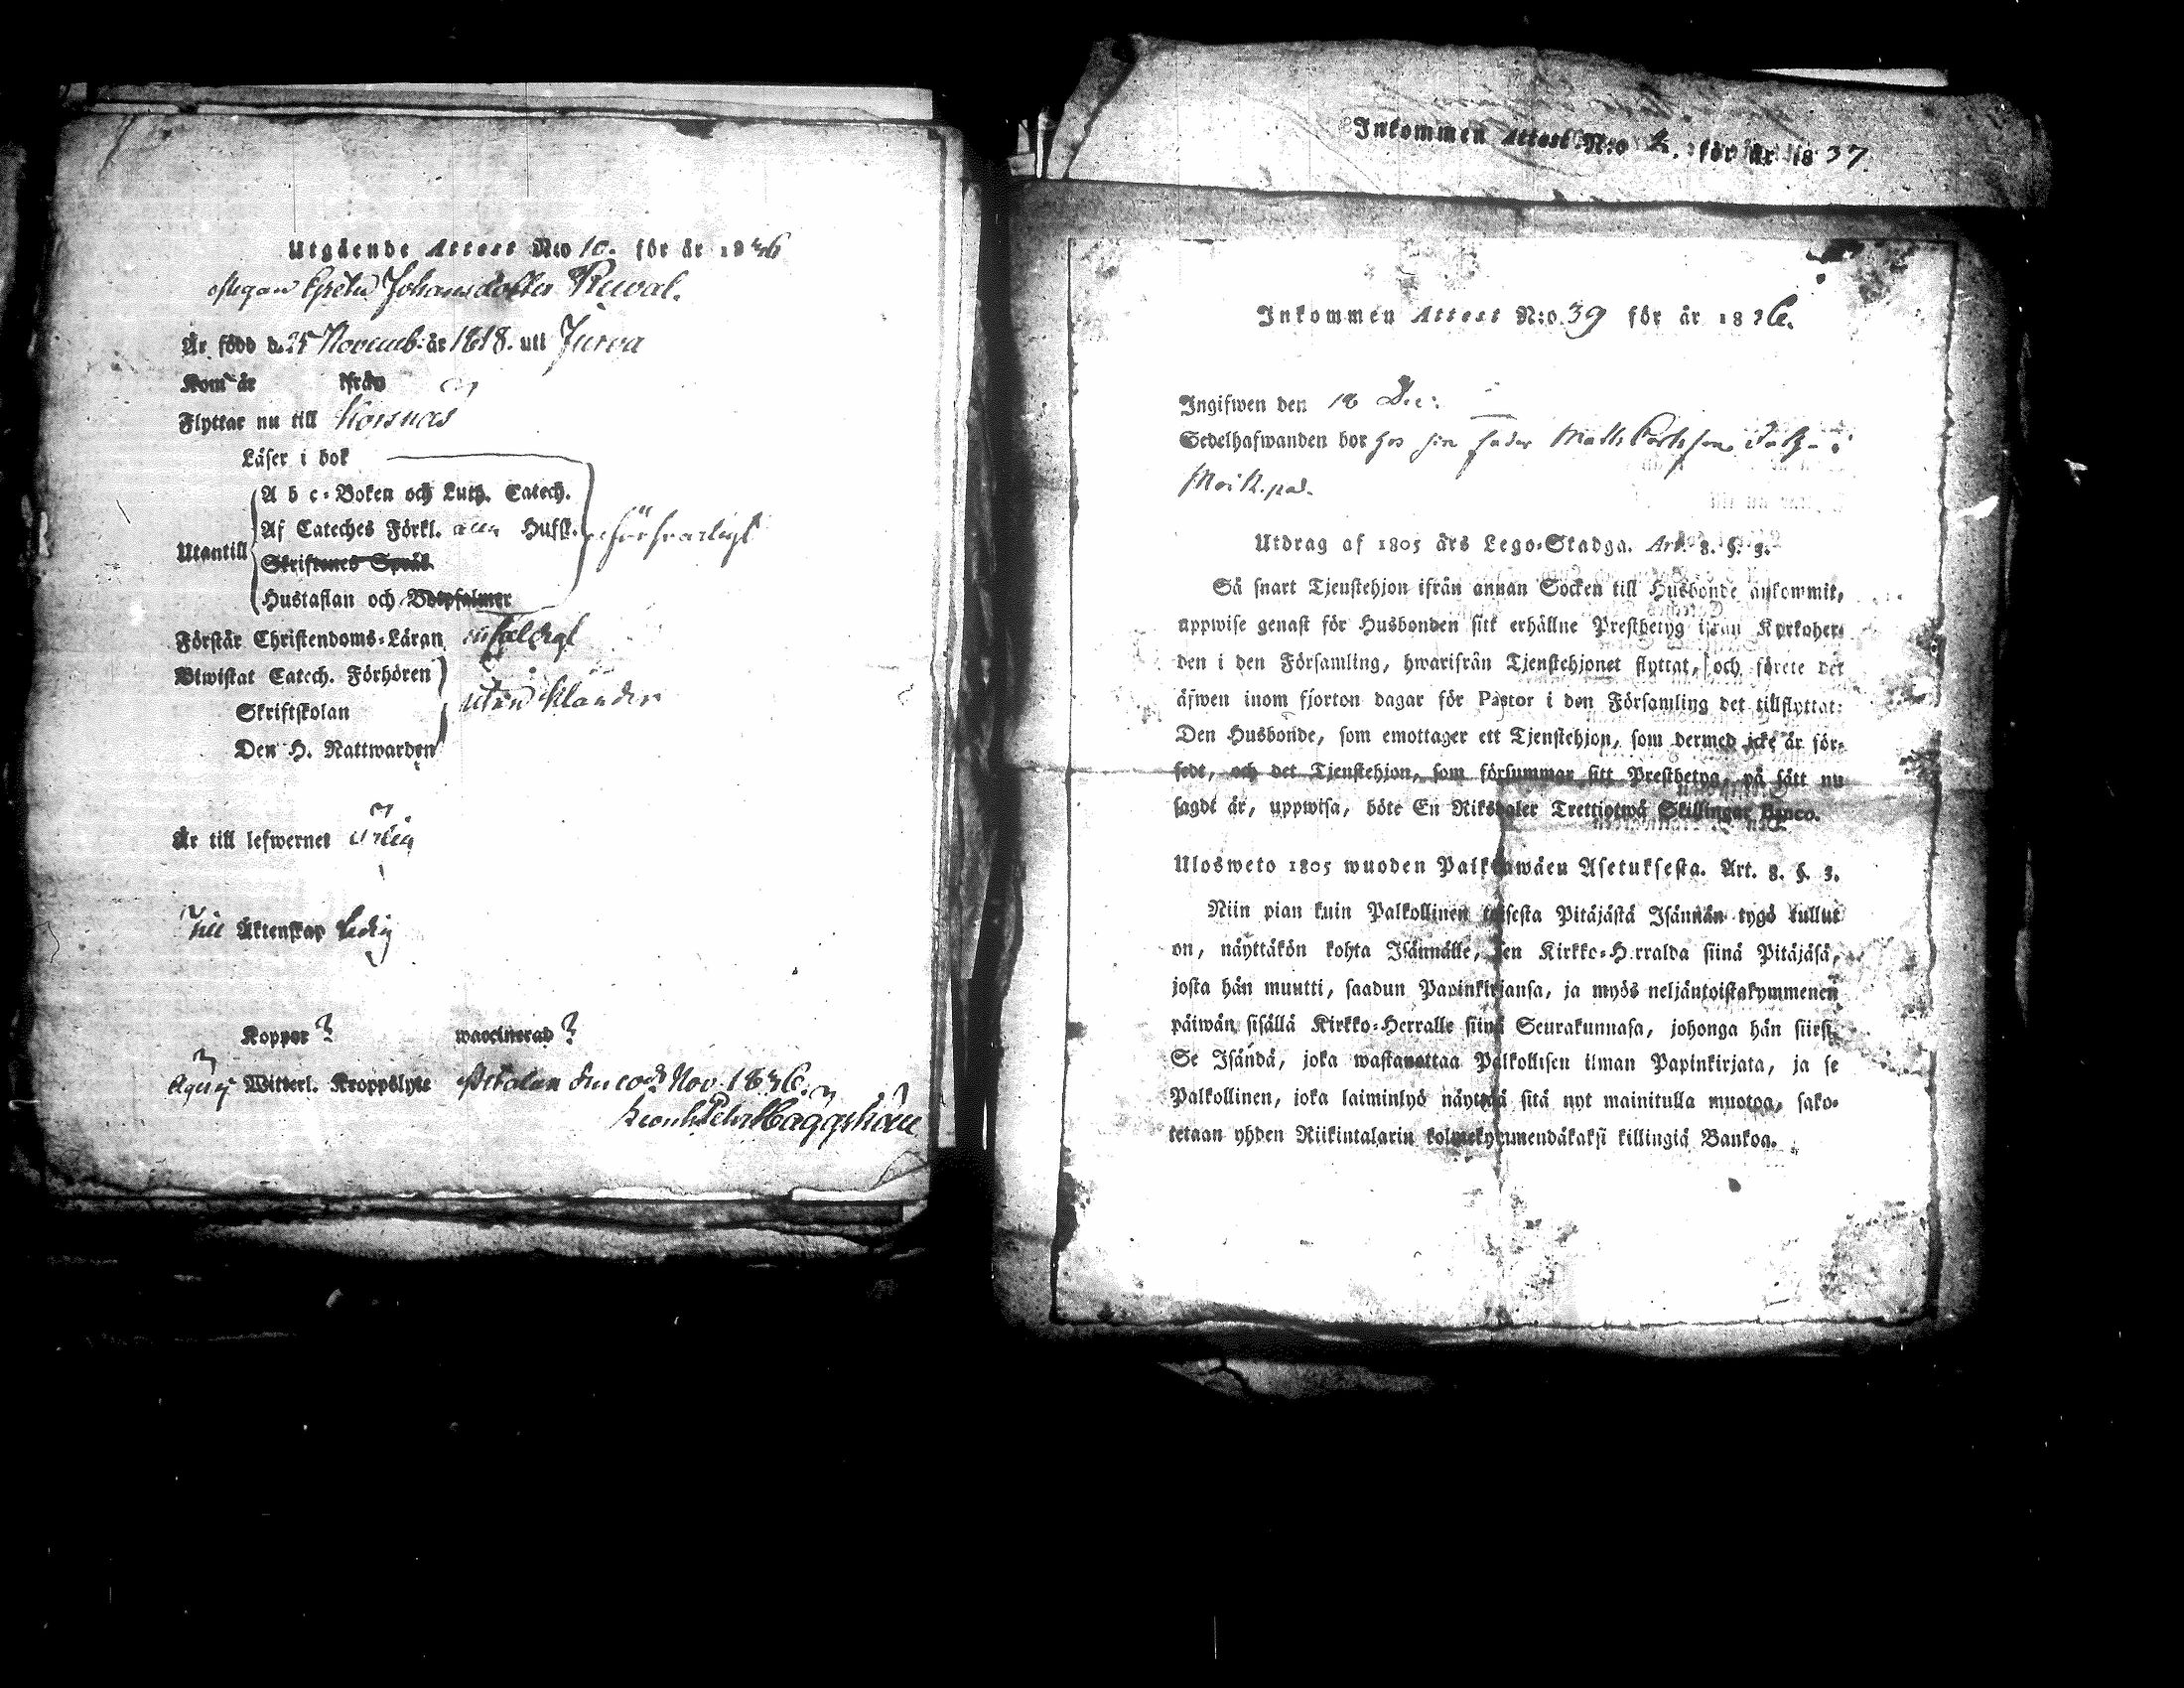 Utgående Attest N:o 10. för år 1836
Greta Johansdotter
Är född d. 25 Novemb: år 1818. uti Jurva
Kom år ifrån
Flyttar nu till Korsnäs
Läser i bok
A b c-Boken och Luth. Catech.
Af Cateches Förkl. Hufst. försvarligt
Utantill
Skriftenes Språk
Hustaflan och Botpsalmer
Förstår Christendoms-Läran enfaldigt
Biwistat Catech. Förhören
Skriftskolan utan klander
Den H. Nattwarden
Är till lefwernet ärlig
Till Äktenskap ledig
Koppor? waccinerad?
Ägug Witterl. Kroppslyte Nov. 1836.
Häggström
Inkommen Attest N:o för år 1837.
Inkommen Attest N:o 39 för år 1836.
Ingifwen den 18 Dec:
Sedelhafwanden bor hos sin fader Matts
Utdrag af 1805 års Lego-Stadga. Art. 8. §. 3.
Så snart Tjenstehjon ifrån annan Socken till Husbonde ankommit,
uppwise genast för Husbonden sitt erhållne Prestbetyg ifrån Kyrkoher-
den i den Församling, hwarifrån Tjenstehjonet flyttat, och förete det
äfwen inom fjorton dagar för Pastor i den Församling det tillflyttat:
Den Husbonde, som emottager ett Tjenstehjon, som dermed icke är för-
sedt, och det Tjenstehjon, som försummar sitt Prestbetyg, på sätt nu
sagdt är, uppwisa, böte En Riksdaler Trettiotwå Skillingar Banco.
Ulosweto 1805 wuoden Palkkawäen Asetuksesta. Art. 8. §. 3.
Niin pian kuin Palkollinen toisesta Pitäjästä Isännän tygö tullut
on, näyttäkön kohta Isännälle, sen Kirkko-Herralda siinä Pitäjäsä,
josta hän muutti, saadun Papinkirjansa, ja myös neljäntoistakymmenen
päiwän sisällä Kirkko-Herralle siinä Seurakunnasa, johonga hän siirsi.
Se Isändä, joka wastanottaa Palkollisen ilman Papinkirjata, ja se
Palkollinen, joka laiminlyö näyttää sitä nyt mainitulla muotoa, sako-
tetaan yhden Riikintalarin kolmekymmendäkaksi killingiä Bankoa.